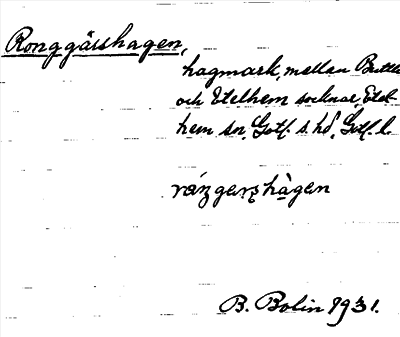 Ronggärshagen,
hagmark, mellan Buttle
och Etelhem socknar, Etel-
hem sn, Gotl. s. hd, Gotl. l.
hàgen
B. Bolin 1931.